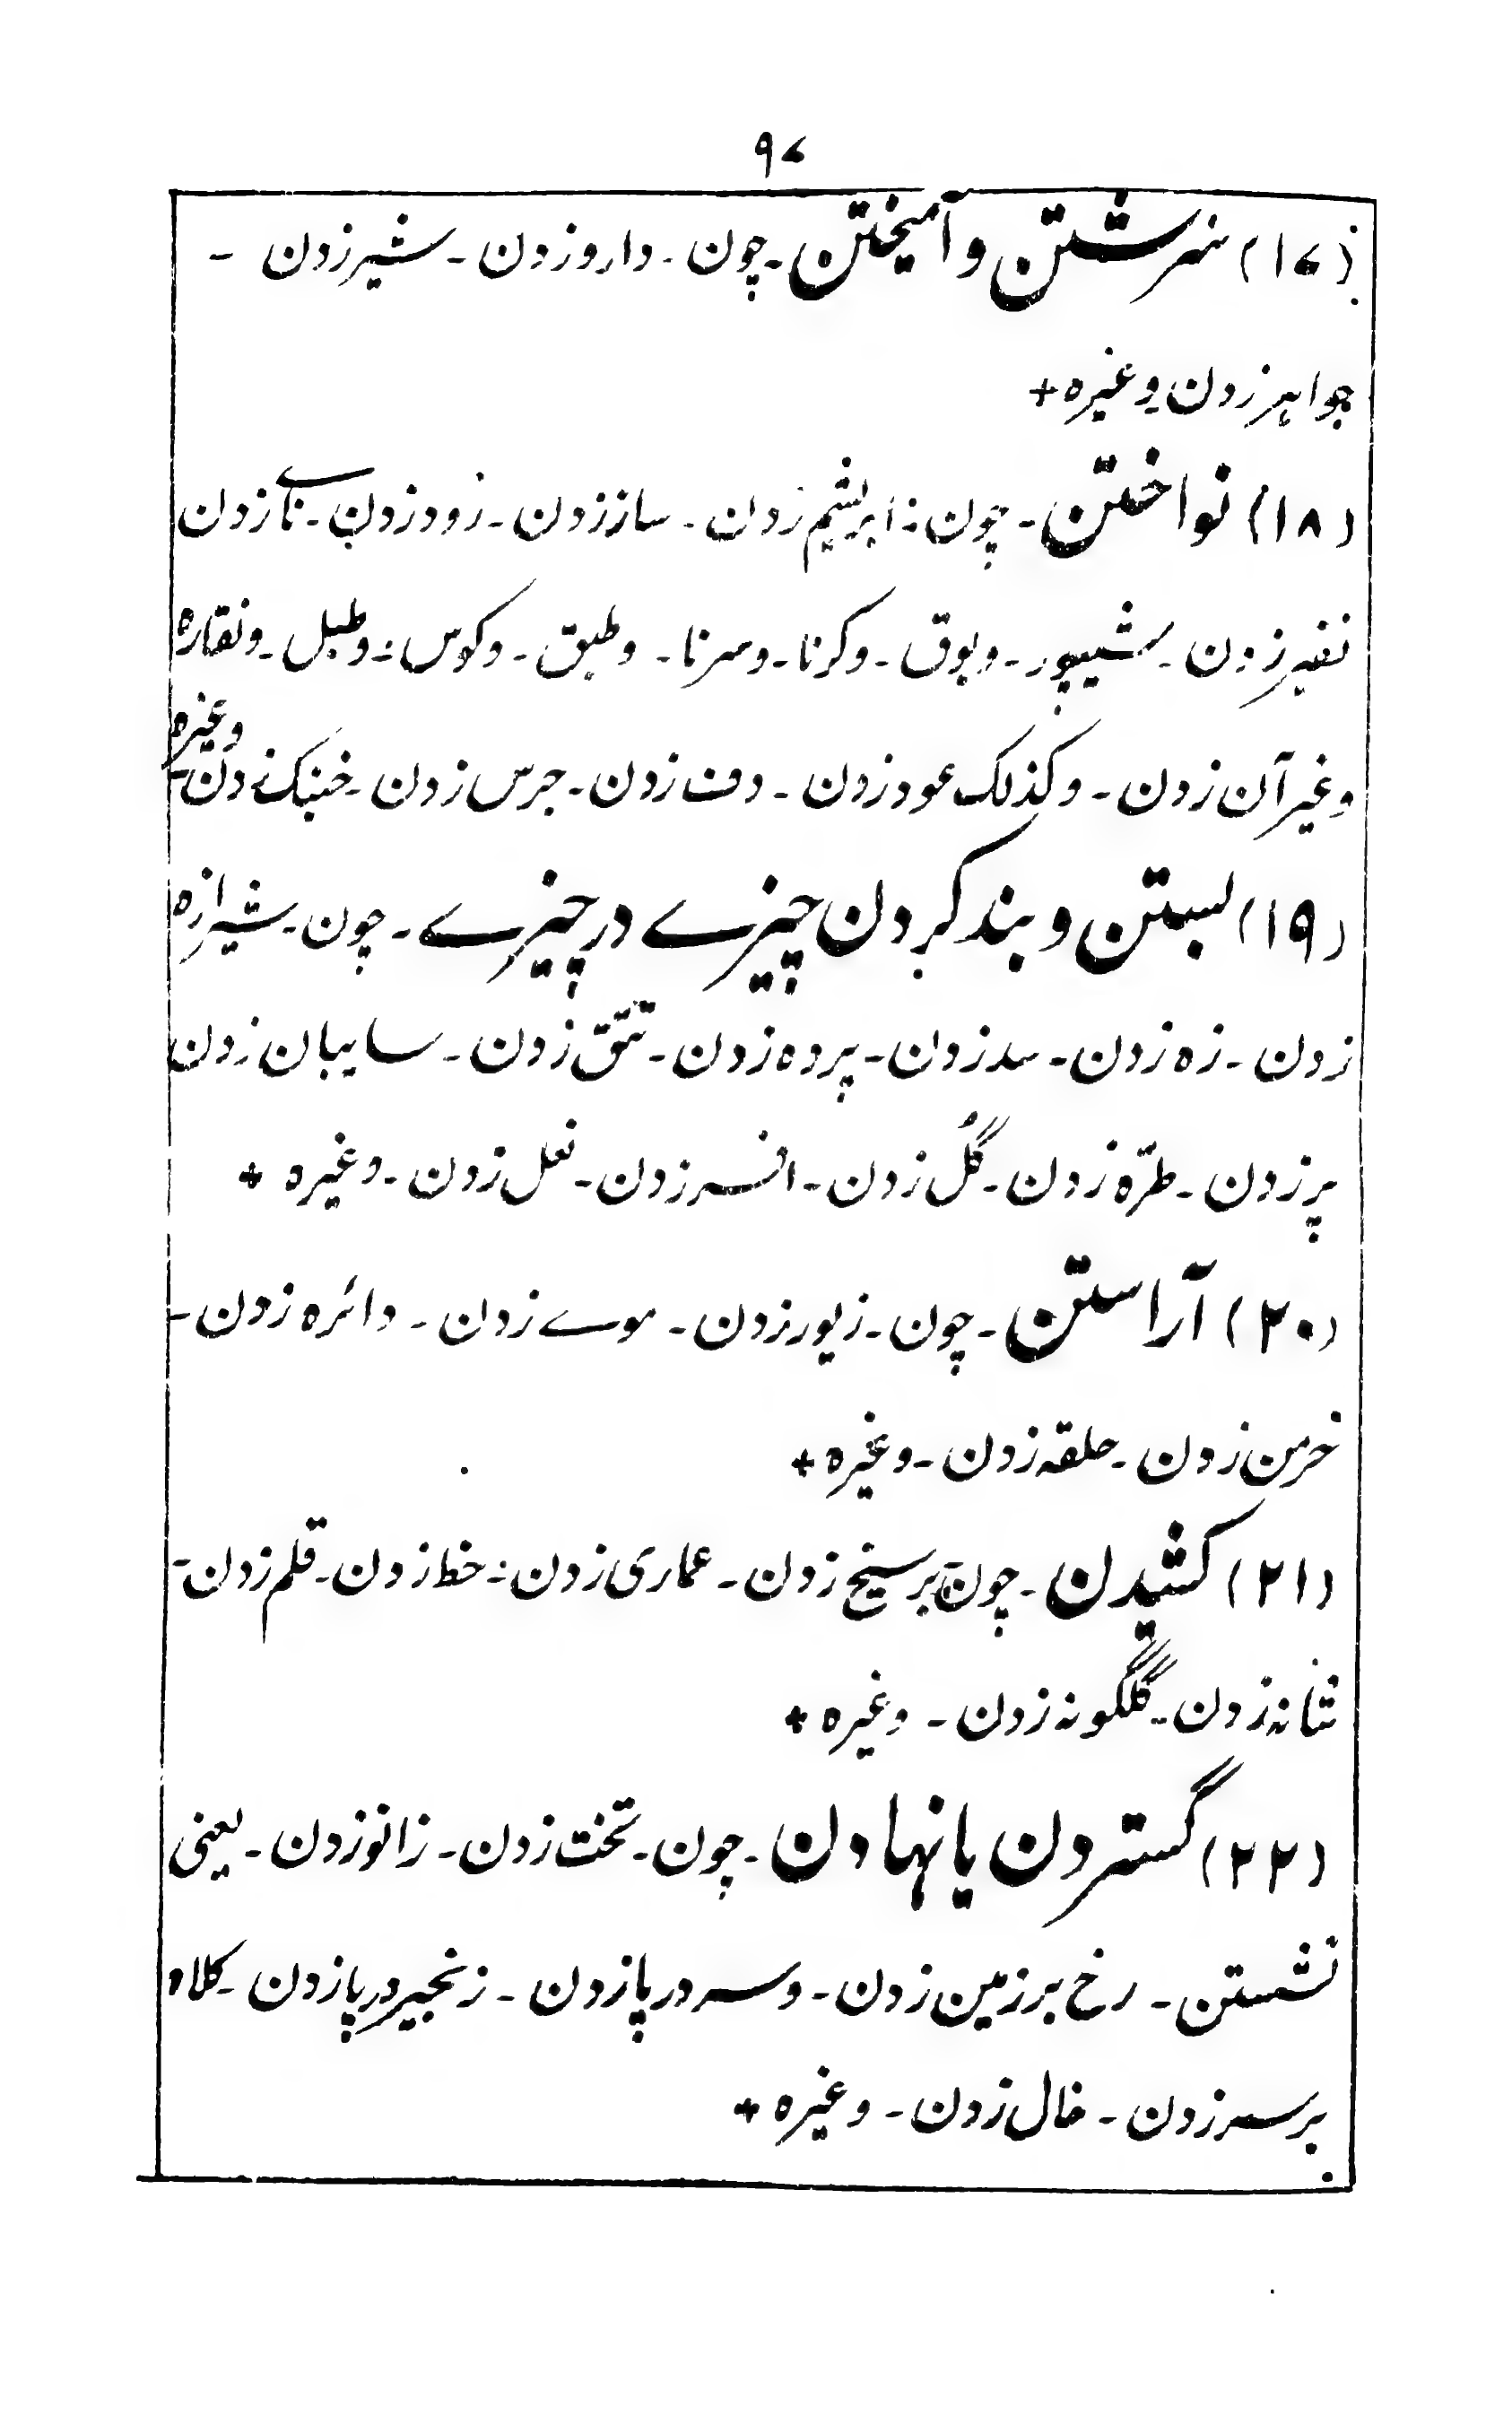 ۹۷
(۱۷) سرشتن و آمیختن۔ چون۔ دارو زدن۔ شیر زدن ۔
جواہر زدن۔ وغیرہ +
(۱۸) نواختن۔ چون: ابریشم زدن۔ ساز زدن۔ رود زدن۔ نائے زدن
نفیر زدن۔ شیپور۔ و بوق۔ و کرنا۔ و سرنا۔ و طبق۔ و کوس۔ و طبل۔ و نقارہ
وغیر آن زدن۔ و کذلک عود زدن۔ دف زدن۔ جرس زدن۔ خنبک زدن۔ وغیرہ
(۱۹) بستن و بند کردن چیزے در چیزے۔ چون۔ شیرازہ
زدن۔ زہ زدن۔ سد زدن۔ پردہ زدن۔ تتق زدن۔ سایبان زدن
پر زدن۔ طرّہ زدن۔ گُل زدن۔ افسر زدن۔ نعل زدن۔ وغیرہ +
(۲۰) آراستن۔ چون۔ زیور زدن۔ موے زدن۔ دائرہ زدن۔
خرمن زدن۔ حلقہ زدن۔ وغیرہ +
(۲۱) کشیدن۔ چون۔ بر سیخ زدن۔ عماری زدن۔ خط زدن۔ قلم زدن۔
شانہ زدن۔ گلگونہ زدن۔ وغیرہ +
(۲۲) گستردن یا نہادن۔ چون۔ تخت زدن۔ زانو زدن۔ یعنی
نشستن۔ رخ بر زمین زدن۔ و سر در پا زدن۔ زنجیر در پا زدن۔ کلاہ
بر سر زدن۔ خال زدن۔ وغیرہ +